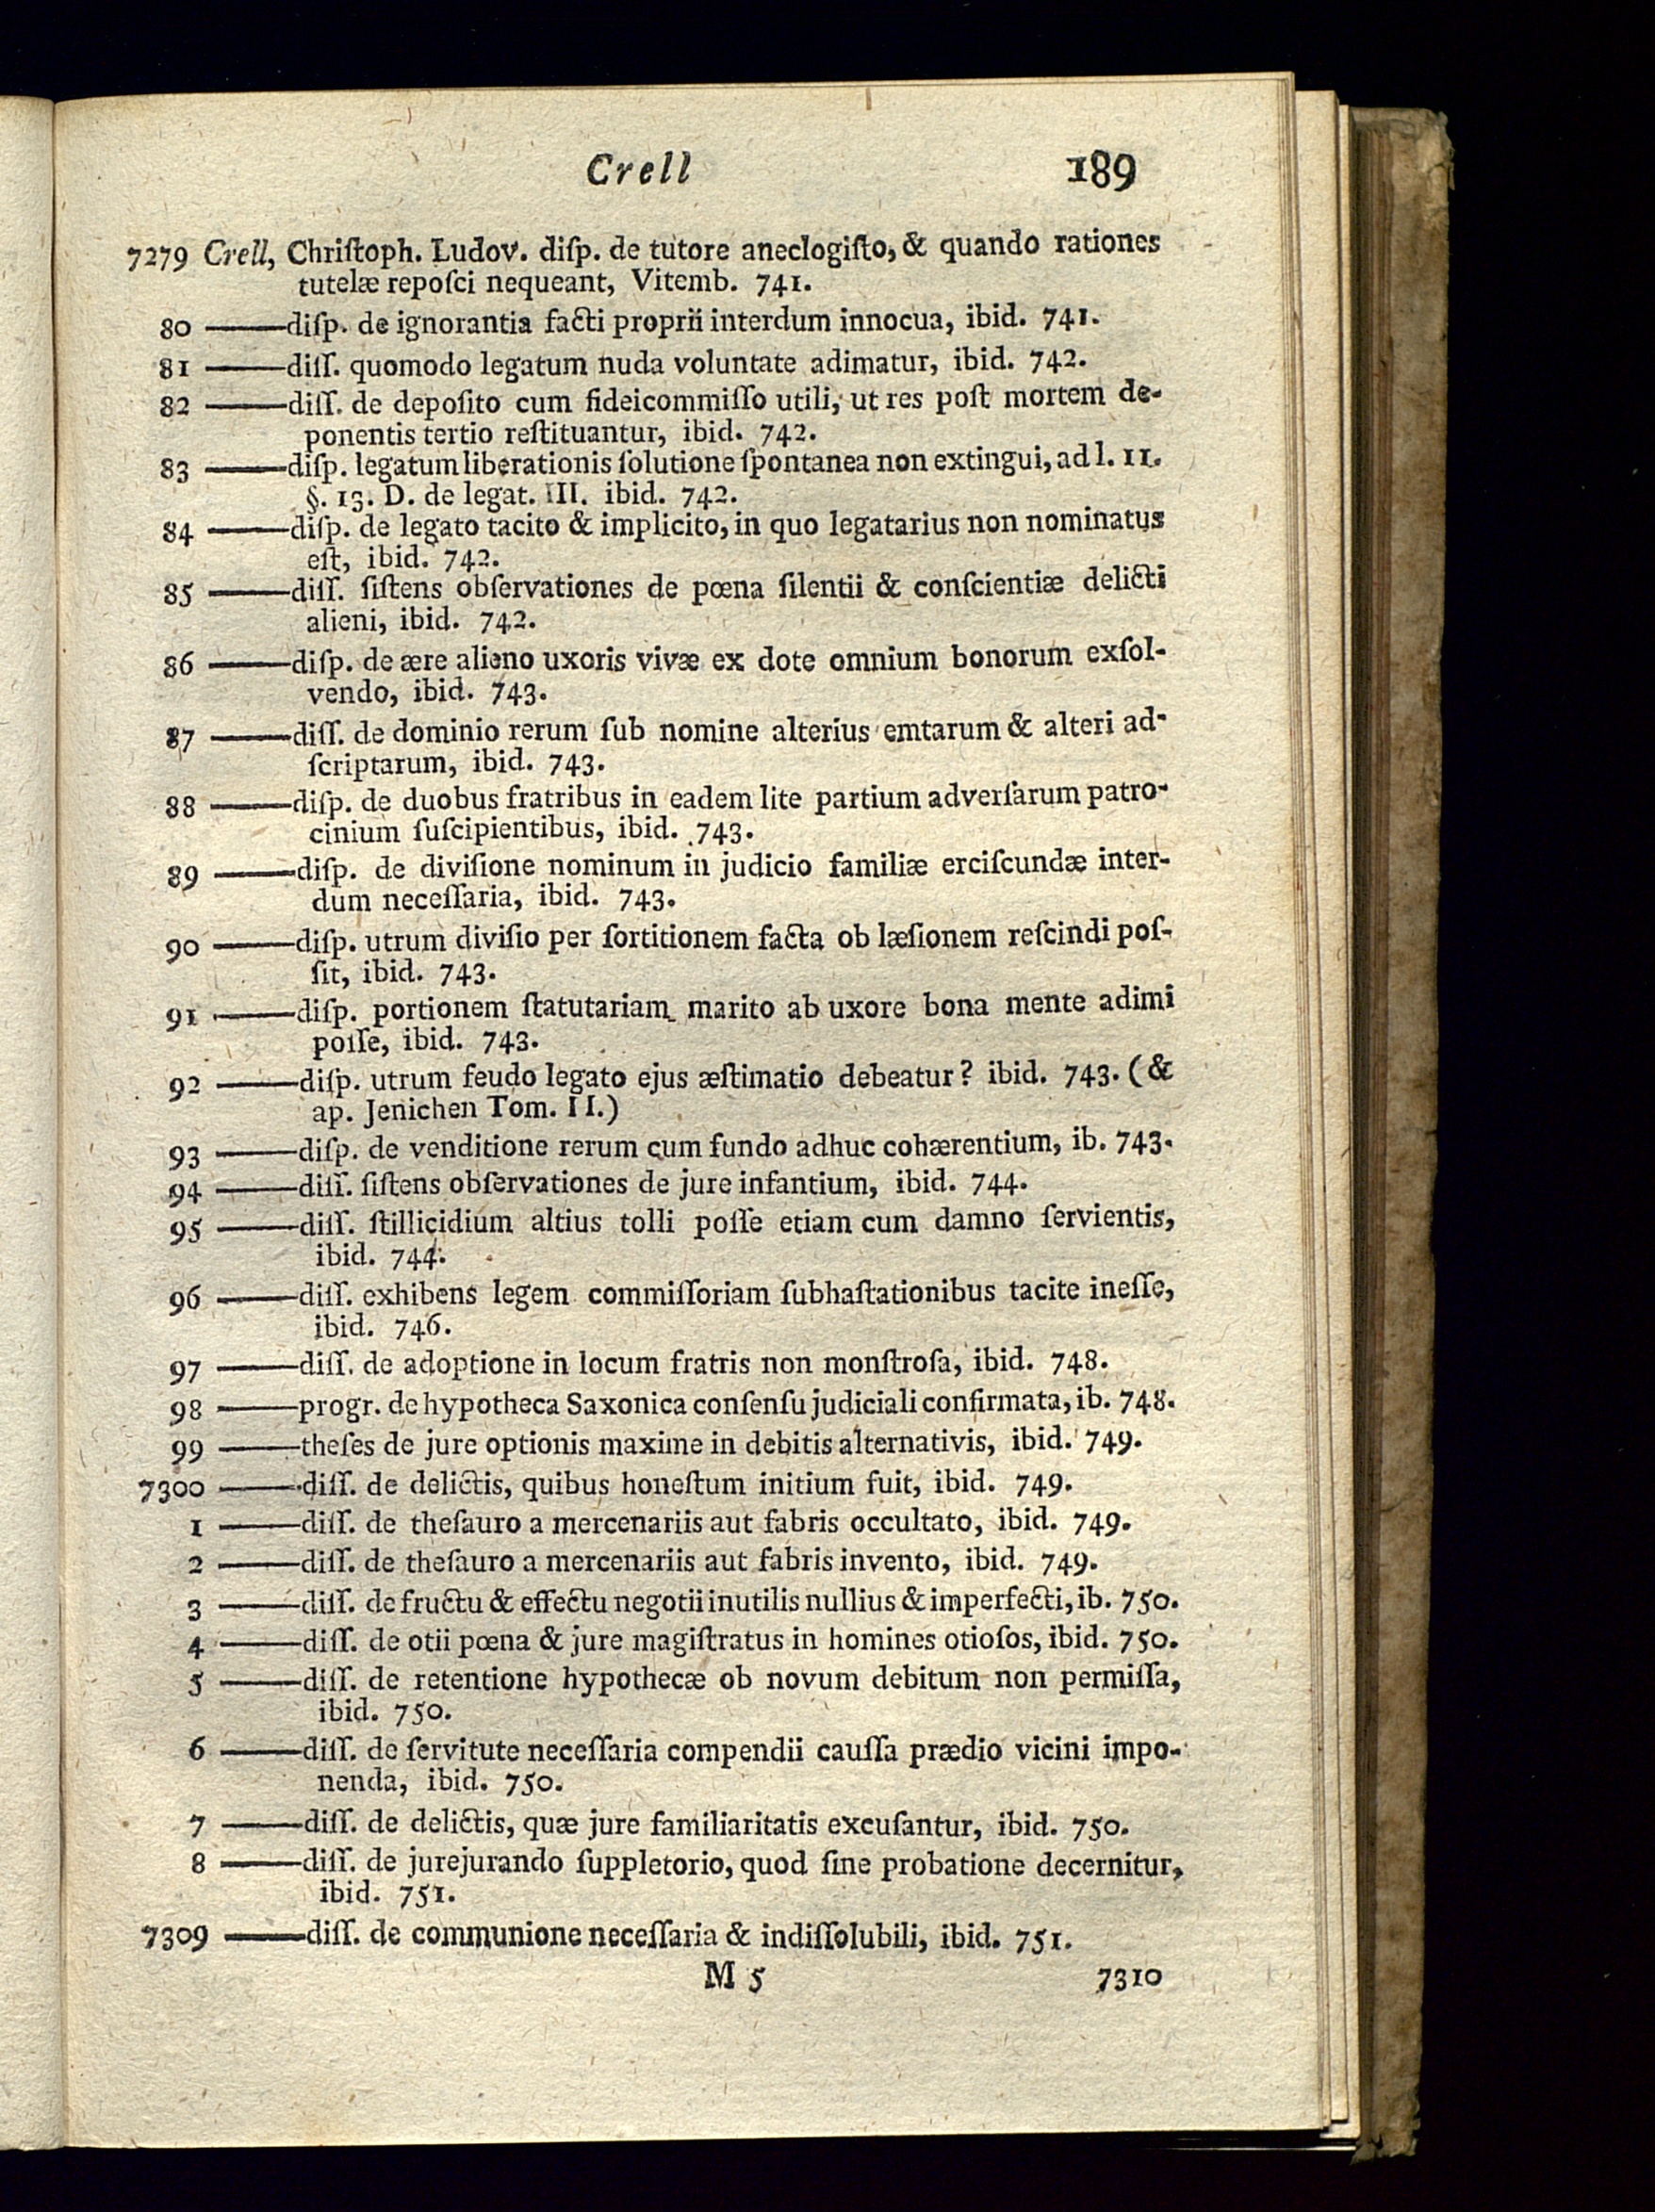 Crell 189
7279 Crell, Chriſtoph. Ludov. diſp. de tutore aneclogiſto, & quando rationes
tutelæ repoſci nequeant, Vitemb. 741.
80 ——diſp. de ignorantia facti proprii interdum innocua, ibid. 741.
81 ——diſſ. quomodo legatum nuda voluntate adimatur, ibid. 742.
82 ——diſſ. de depoſito cum fideicommiſſo utili, ut res poſt mortem de-
ponentis tertio reſtituantur, ibid. 742.
83 ——diſp. legatum liberationis ſolutione ſpontanea non extingui, ad l. 11.
§. 13. D. de legat. III. ibid. 742.
84 ——diſp. de legato tacito & implicito, in quo legatarius non nominatus
eſt, ibid. 742.
85 ——diſſ. ſiſtens obſervationes de pœna ſilentii & conſcientiæ delicti
alieni, ibid. 742.
86 ——diſp. de ære alieno uxoris vivæ ex dote omnium bonorum exſol-
vendo, ibid. 743.
87 ——diſſ. de dominio rerum ſub nomine alterius emtarum & alteri ad-
ſcriptarum, ibid. 743.
88 ——diſp. de duobus fratribus in eadem lite partium adverſarum patro-
cinium ſuſcipientibus, ibid. 743.
89 ——diſp. de diviſione nominum in judicio familiæ erciſcundæ inter-
dum neceſſaria, ibid. 743.
90 ——diſp. utrum diviſio per ſortitionem facta ob læſionem reſcindi poſ-
ſit, ibid. 743.
91 ——diſp. portionem ſtatutariam marito ab uxore bona mente adimi
poſſe, ibid. 743.
92 ——diſp. utrum feudo legato ejus æſtimatio debeatur? ibid. 743. (&
ap. Jenichen Tom. II.)
93 ——diſp. de venditione rerum cum fundo adhuc cohærentium, ib. 743.
94 ——diſſ. ſiſtens obſervationes de jure infantium, ibid. 744.
95 ——diſſ. ſtillicidium altius tolli poſſe etiam cum damno ſervientis,
ibid. 744.
96 ——diſſ. exhibens legem commiſſoriam ſubhaſtationibus tacite ineſſe,
ibid. 746.
97 ——diſſ. de adoptione in locum fratris non monſtroſa, ibid. 748.
98 ——progr. de hypotheca Saxonica conſenſu judiciali confirmata, ib. 748.
99 ——theſes de jure optionis maxime in debitis alternativis, ibid. 749.
7300 ——diſſ. de delictis, quibus honeſtum initium fuit, ibid. 749.
1 ——diſſ. de theſauro a mercenariis aut fabris occultato, ibid. 749.
2 ——diſſ. de theſauro a mercenariis aut fabris invento, ibid. 749.
3 ——diſſ. de fructu & effectu negotii inutilis nullius & imperfecti, ib. 750.
4 ——diſſ. de otii pœna & jure magiſtratus in homines otioſos, ibid. 750.
5 ——diſſ. de retentione hypothecæ ob novum debitum non permiſſa,
ibid. 750.
6 ——diſſ. de ſervitute neceſſaria compendii cauſſa prædio vicini impo-
nenda, ibid. 750.
7 ——diſſ. de delictis, quæ jure familiaritatis excuſantur, ibid. 750.
8 ——diſſ. de jurejurando ſuppletorio, quod ſine probatione decernitur,
ibid. 751.
7309 ——diſſ. de communione neceſſaria & indiſſolubili, ibid. 751.
M 5 7310